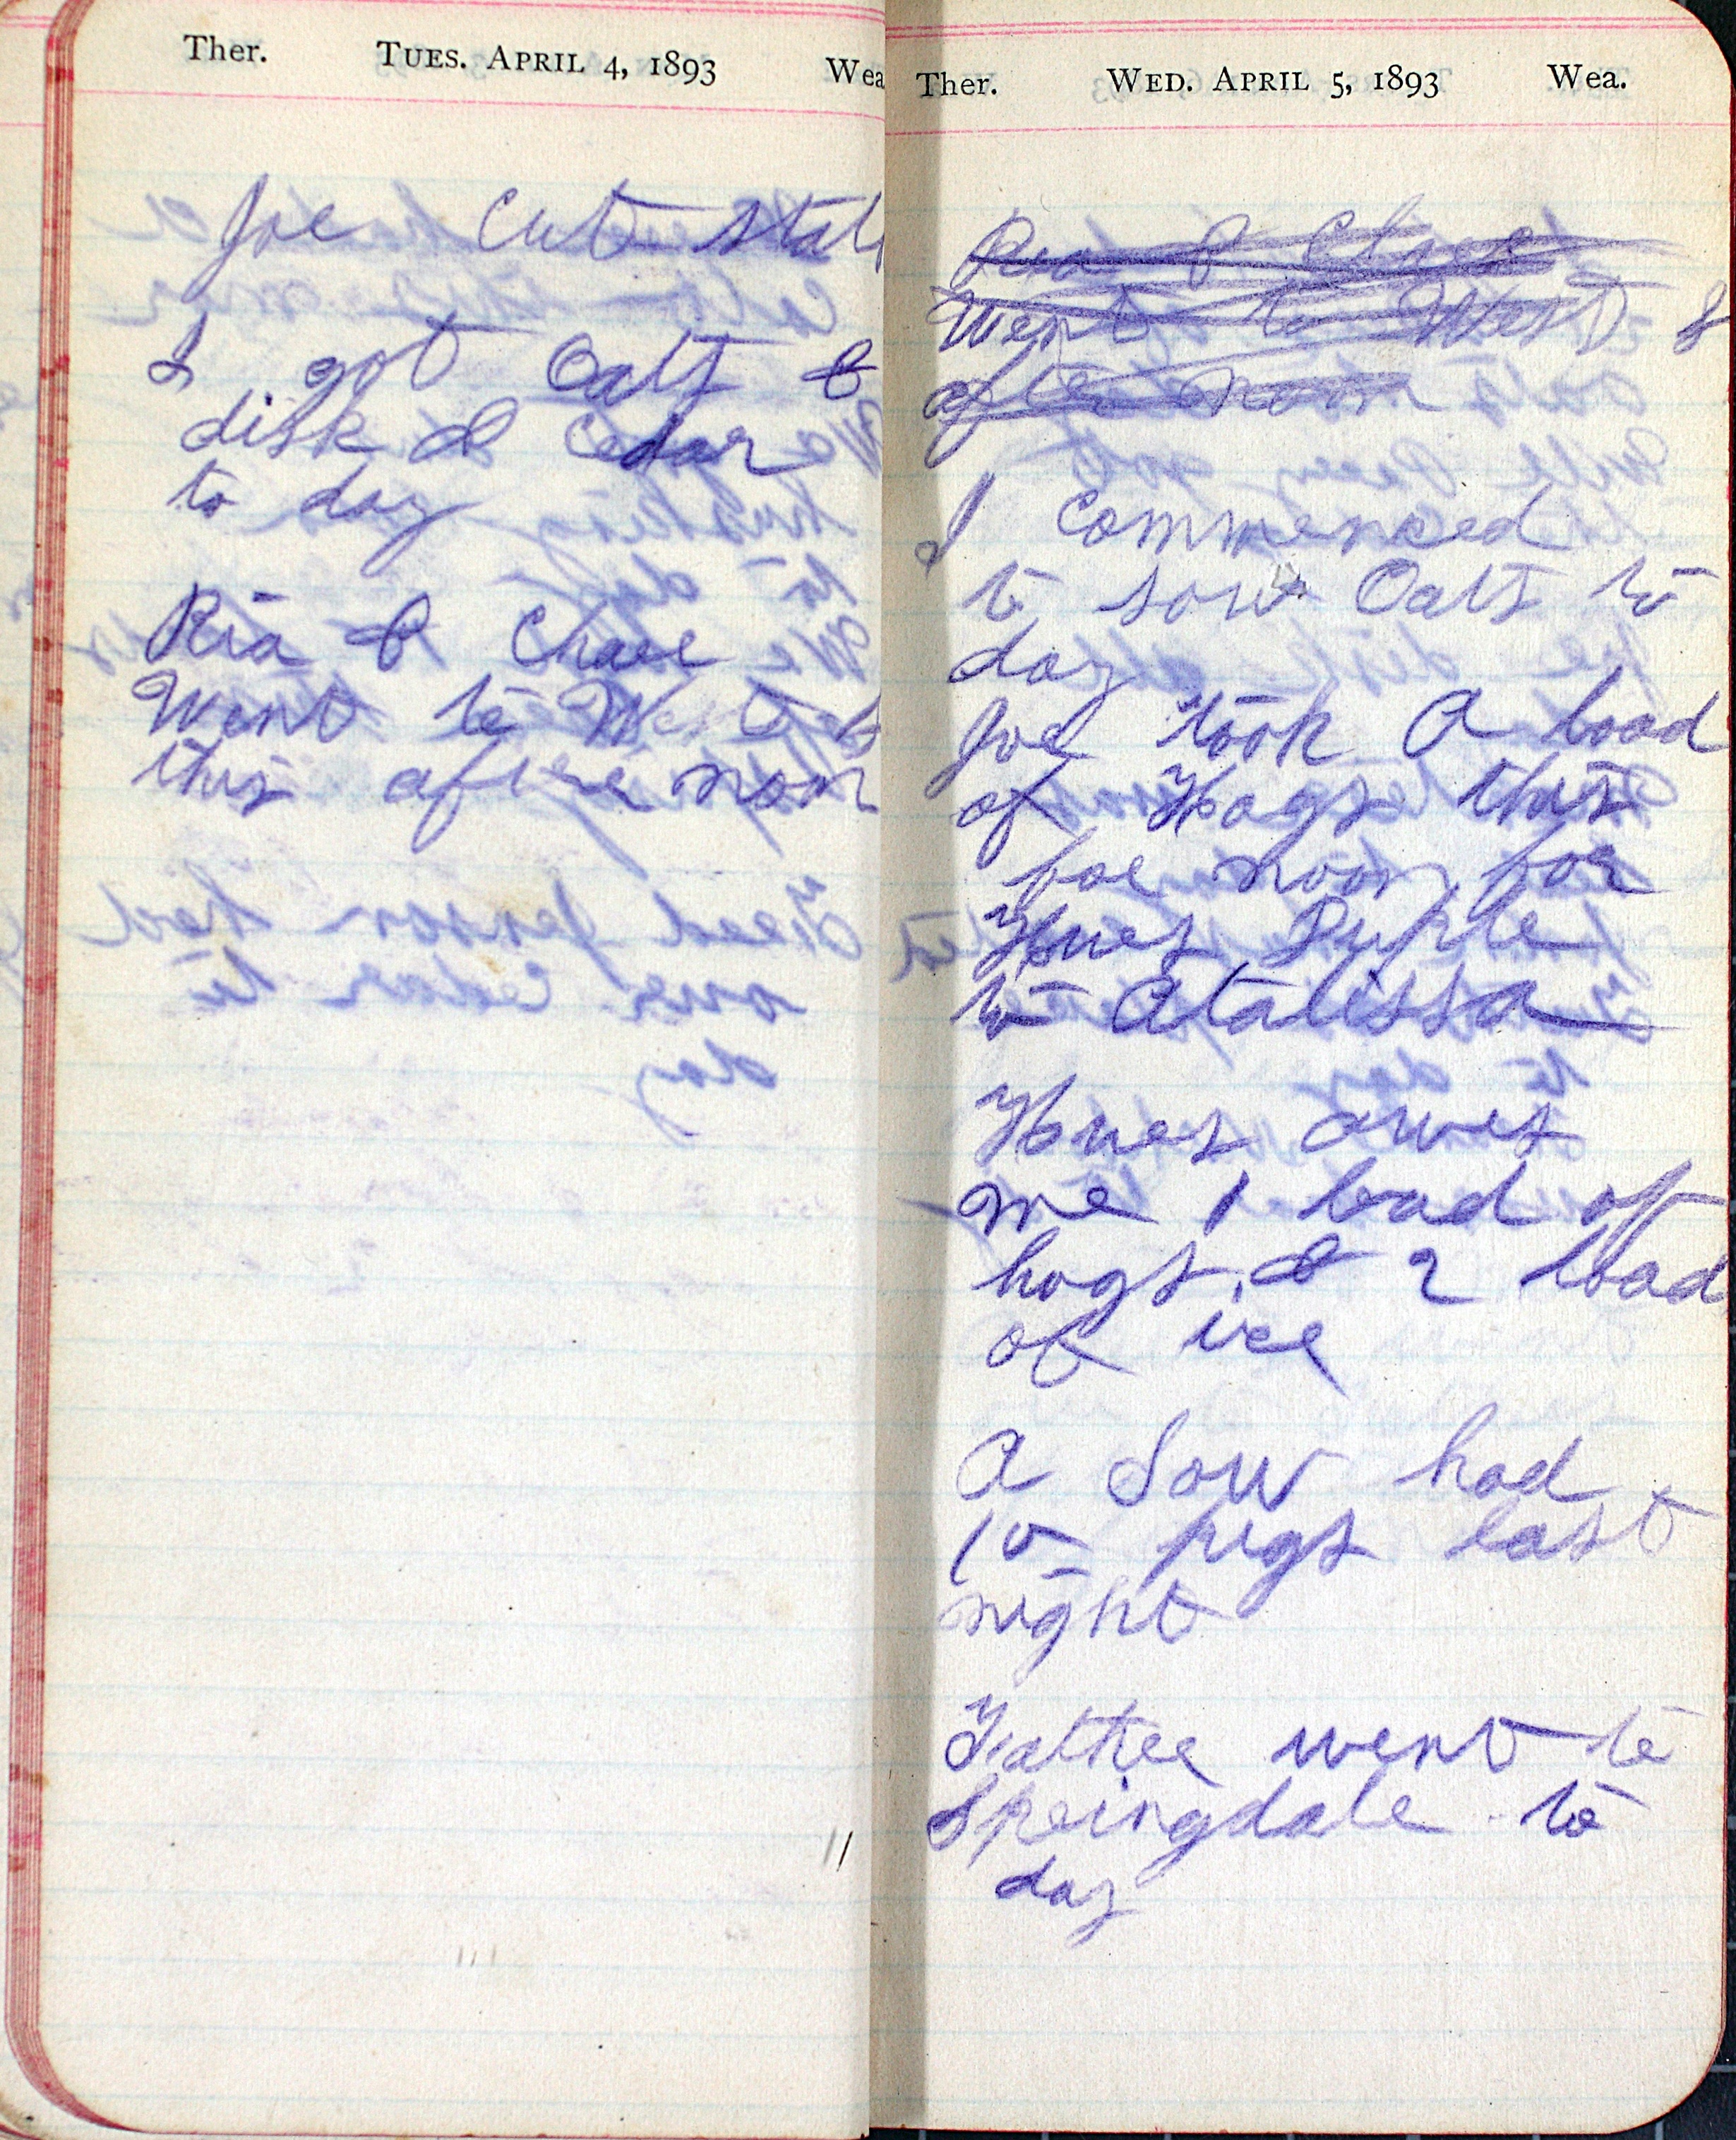 Ther. TUES. APRIL 4, 1893 Wea
Joe Cut stalk
I got Oats &
disk & Cedar
to day
Ria & Chase
Went to West
this after noon
Ther. WED. APRIL 5, 1893 Wea.
Ria & Chase
Went to West
after noon
I Commenced
to sow Oats to
day
Joe took A load
of Hogs this
foe noon for
to Atalissa
owes
me 1 load of
hogs & 2 load
of ice
A Sow had
10 pigs last
night
went to
Springdale to
day